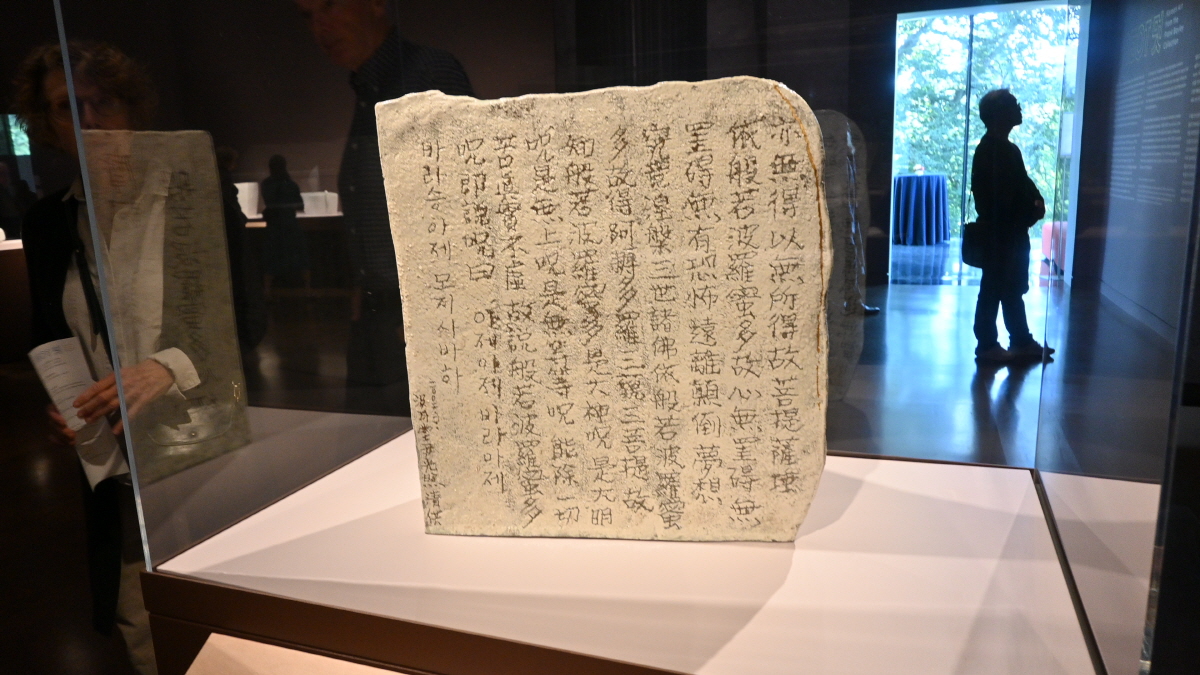 亦無得以無所得故菩提薩埵
依般若波羅蜜多故心無罣碍無
罣碍無有恐怖遠離顛倒夢想
究竟涅槃三世諸佛依般若波羅蜜
多故得阿耨多羅三藐三菩提故
知般若波羅蜜多是大神呪是大明
呪是無上呪是無等等呪能除一切
苦眞實不虛故說般若波羅蜜多
呪卽說呪曰 아제아제바라아제
바라승아제 모지사바하
尹光照清供